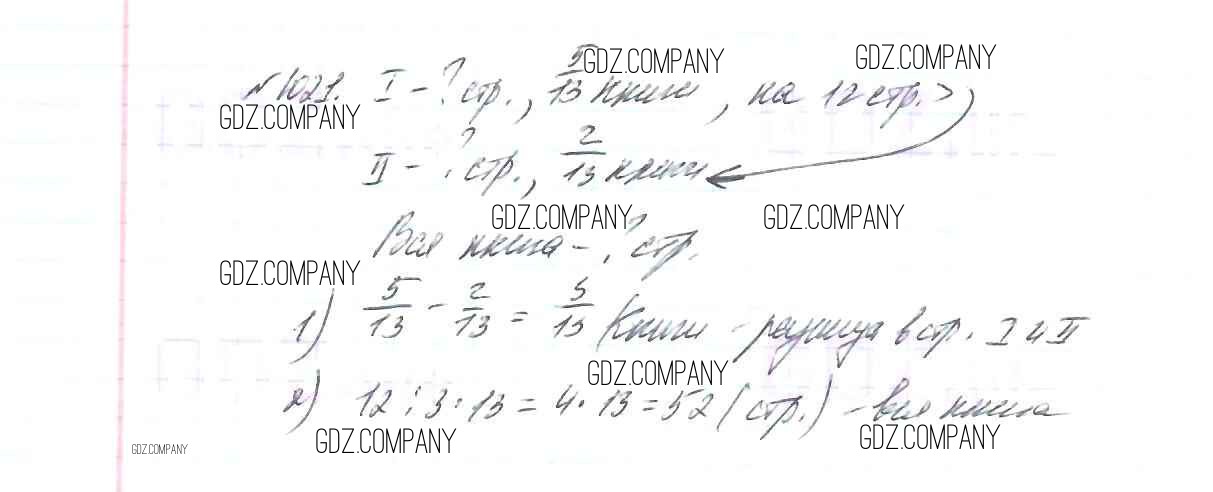 GDZ.COMPANY GDZ.COMPANY
№1021. I - ? стр., 5/13 книги, на 12 стр. >
GDZ.COMPANY
II - ? стр., 2/13 книги
GDZ.COMPANY GDZ.COMPANY
Вся книга - ? стр.
GDZ.COMPANY
1) 5/13 - 2/13 = 3/13 (книги - разница в стр. I и II
GDZ.COMPANY
2) 12 : 3 · 13 = 4 · 13 = 52 (стр.) - вся книга
GDZ.COMPANY GDZ.COMPANY GDZ.COMPANY